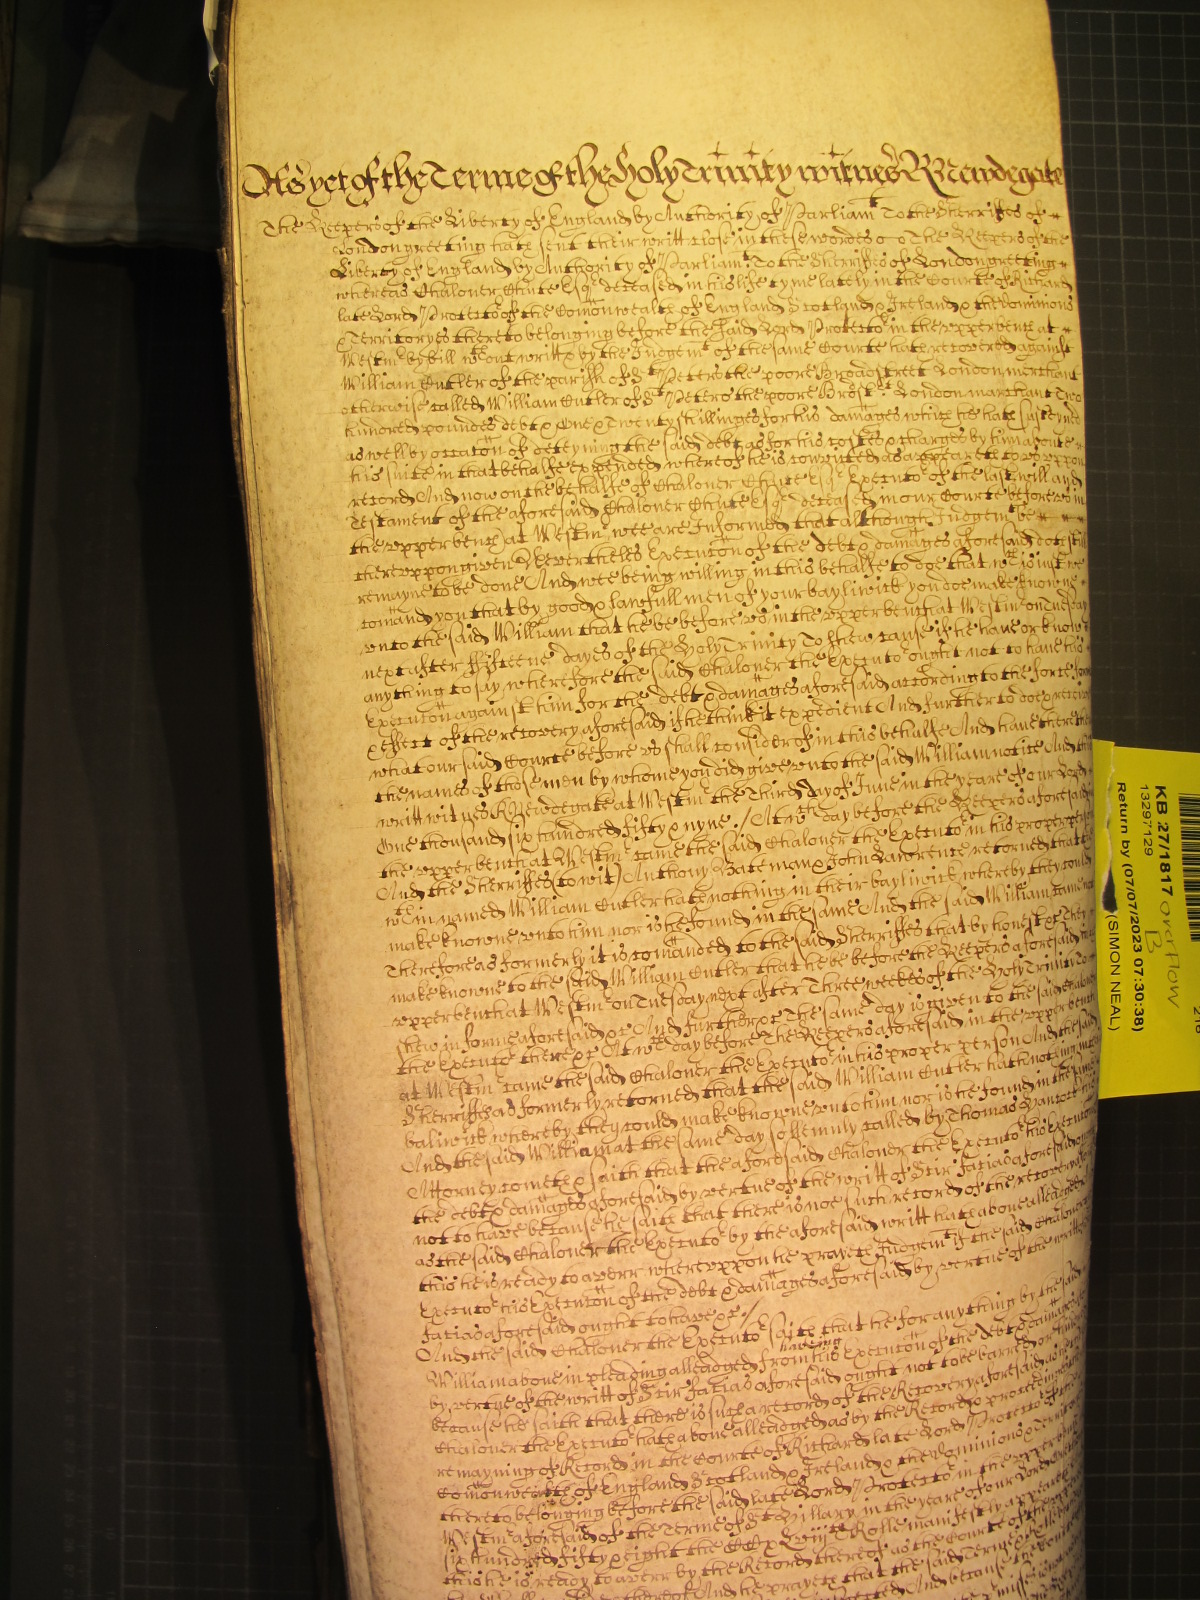 As yet of the Terme of the Holy Trinity witnes R Newdegate
The Keepers of the Liberty of England by Authority of Parliamt To the Sherriffes of
London greeting hath sent their writt close in these wordes The Keepers of the
Liberty of England by Authority of Parliamt To the Sherriffes of London greeting
whereas Chaloner Chute Esqr deceased in his life tyme lately in the Courte of Richard
late Lord Protector of the Comonwealth of England Scotland & Ireland & the Dominions
& Territoryes thereto belonging before the said Lord Protector in the upper bench at
Westmr by bill wthout writt & by the Judgemt of the same Courte hath recovered against
William Cutler of the parish of St Peters the poore Broadstreet London merchant
otherwise called William Cutler of St Peters the poore London marchant Two
hundred poundes debt & One & Twenty shillinges for his damages which he hath susteyned
as well by occacon of deteyning the said debt as for his costes & charges by him aboute
his suite in that behalfe expended whereof he is convicted as appeareth to us uppon
record And now on the behalfe of Chaloner Chute Esqr Executor of the last will and
Testament of the aforesaid Chaloner Chute Esqr deceased in our Courte before us in
the upper bench at Westmr wee are Informed that although Judgemt be
thereuppon given Nevertheles Execucon of the debt & damages aforesaid doth still
remayne to be done And wee being willing in this behalfe to doe that wch is just we
comand you that by good & lawfull men of your bayliwick you doe make knowne
unto the said William that he be before us in the upper bench at Westmr on Tuesday
next after Fifteene dayes of the Holy Trinity To shew cause if he have or know
any thing to say wherefore the said Chaloner the Executor ought not to have his
Execucon against him for the debt & damages aforesaid according to the force forme
& effect of the recovery aforesaid if he think it expedient And further to doe & receive
what our said Courte before us shall consider of in this behalfe And have there the
the names of those men by whome you did give unto the said William notice And this
writt witnes R Newdegate at Westmr the Third day of June in the yeare of our Lord
One thousand six hundred fifty & nyne / At wch day before the Keepers aforesaid in
the upper bench at Westmr came the said Chaloner the Executor in his proper person
And the Sherriffes (to wit) Anthony Bateman & John Lawrence retorned that the
wthin named William Cutler hath nothing in their bayliwick whereby they could
make knowne unto him nor is he found in the same And the said William came not
Therefore as formerly it is comanded to the said Sherriffes that by honest &c They
make knowne to the said William Cutler that he be before the Keepers aforesaid in the
upper bench at Westmr on Tuesday next after Three weekes of the Holy Trinity To
shew in forme aforesaid &c And further &c The same day is given to the said Chaloner
the Executor there &c At wch day before The Keepers aforesaid in the upper bench
at Westmr came the said Chaloner the Executor in his proper person And the said
Sherriffes as formerly retorned that the said William Cutler hath nothing in their
baliwick whereby they could make knowne unto him nor is he found in the same
And the said William at the same day sollemnly called by Thomas
Attorney cometh & saith that the aforesaid Chaloner the Executor his Execucon of
the debt & damages aforesaid by vertue of the writt of Scir facias aforesaid ought
not to have because he saith that there is noe such record of the recovery aforesaid
as the said Chaloner the Executor by the aforesaid writt hath above alleadged And
this he is ready to averr whereuppon he prayeth Judgemt if the said Chaloner
Executor his Execucon of the debt & damages aforesaid by vertue of the writt
facias aforesaid ought to have &c /
And the said Chaloner the Executor saith that he for any thing by the said
William above in pleading alleadged from having his Execucon of the debt & damages
by vertue of the writt of Scir facias aforesaid ought not to be barred
because he saith that there is such a record of the Recovery aforesaid as
Chaloner the Executor hath above alleadged as by the Record & proceedings
remayning of Record in the Courte of Richard late Lord Protector of the
Comonwealth of England Scotland & Ireland & the Dominions & Territoryes
thereto belonging before the said late Lord Protector in the upper bench
Westmr aforesaid of the Terme of St Hillary in the yeare of our Lord
six hundred fifty & eight the Rolle manifestly appeareth
this he is ready to averr by the Record thereof as the Courte
And he prayeth that the said
KB 27/1817 overflow
B
13297129
Return by (07/07/2023 07:30:38)
(SIMON NEAL)